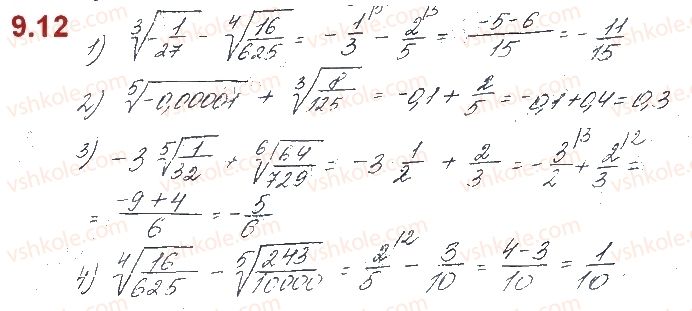 9.12
1) ∛(-1/27) - ⁴√(16/625) = -1/3 - 2/5 = (-5-6)/15 = -11/15
2) ⁵√(-0,00001) + ∛(8/125) = -0,1 + 2/5 = -0,1+0,4=0,3
3) -3 ⁵√(1/32) + ⁶√(64/729) = -3 · 1/2 + 2/3 = -3/2 |3 + 2/3 |2 =
= (-9+4)/6 = -5/6
4) ⁴√(16/625) - ⁵√(243/10000) = 2/5 |2 - 3/10 = (4-3)/10 = 1/10.
vshkole.com